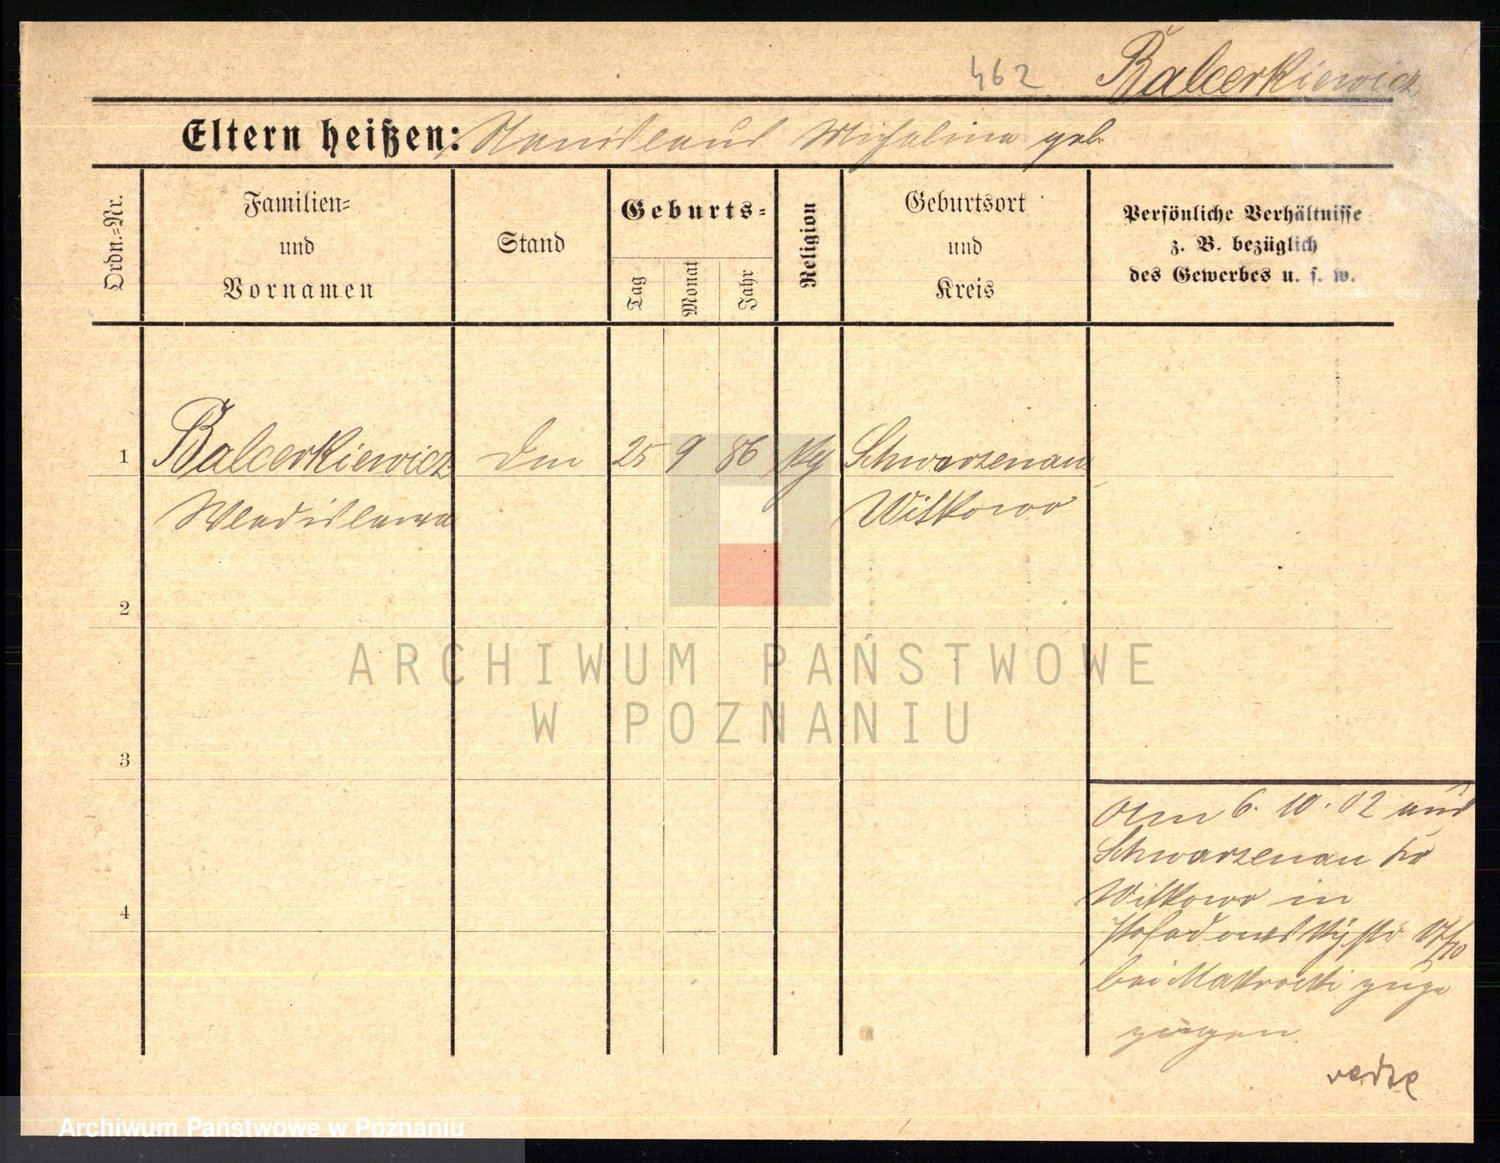 462 Balcerkiewicz
Eltern heißen: Stanislaus Michalina geb.
Ordn.-Nr.
Familien-
und
Vornamen
Stand
Geburts-
Tag
Monat
Jahr
Religion
Geburtsort
und
Kreis
Persönliche Verhältnisse
z. B. bezüglich
des Gewerbes u. s. w.
1 Balcerkiewicz 25 9 86 Schwarzenau
Wladislawa Witkowo
2
ARCHIWUM PAŃSTWOWE
W POZNANIU
3
4
Am 6.10.02 aus
Schwarzenau Kr
Witkowo in
bei zuge
zogen
Archiwum Państwowe w Poznaniu